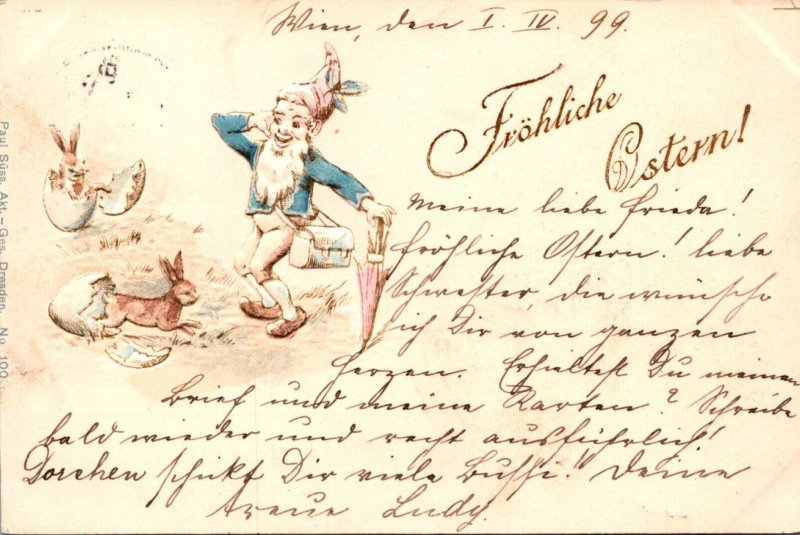 Wien, den I. IV. 99.
Fröhliche
Ostern!
Meine liebe Frieda!
fröhliche Ostern! liebe
Schwester, die wünsche
ich Dir von ganzen
Herzen. Erhieltest Du meinen
Brief und meine Karten? Schreibe
bald wieder und recht ausführlich!
Dorchen schikt Dir viele Bussi! Deine
treue Ludy.
Paul Süss, Akt.-Ges. Dresden. No. 100.